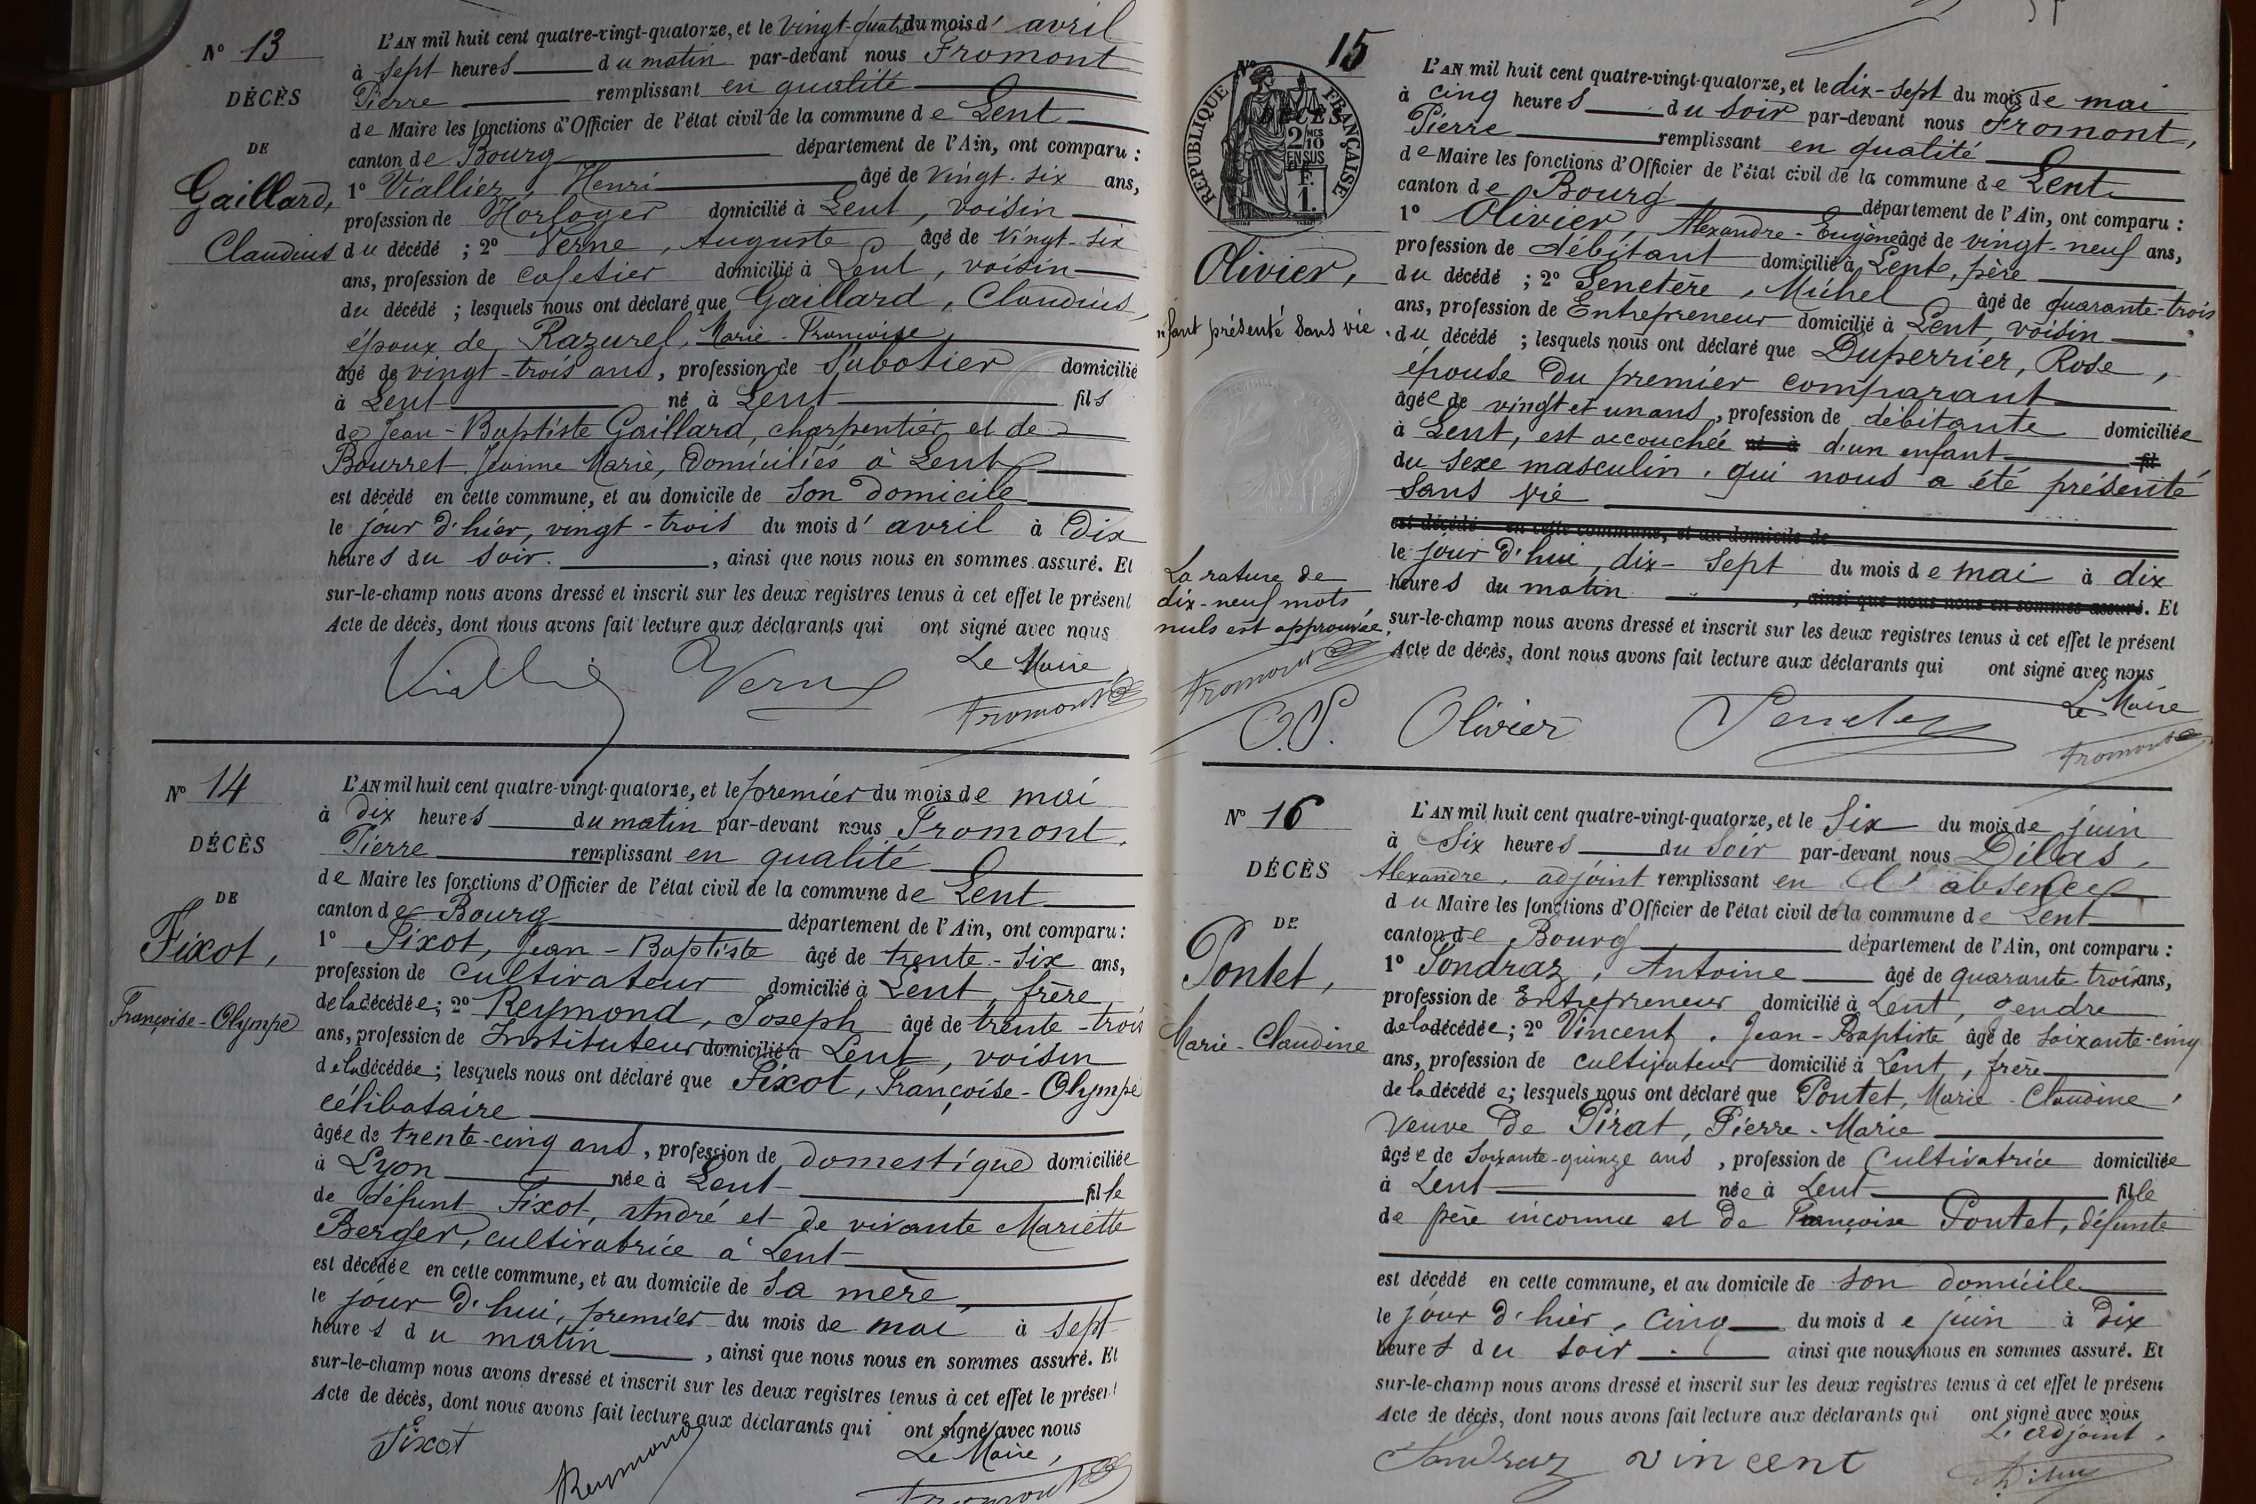 N° 13
DÉCÈS
DE
Gaillard,
Claudius
L'AN mil huit cent quatre-vingt-quatorze, et le vingt-quatre du mois d'avril
à sept heures du matin par-devant nous Fromont
Pierre remplissant en qualité
de Maire les fonctions d'Officier de l'état civil de la commune de Lent
canton de Bourg département de l'Ain, ont comparu :
1° Viallier, Henri âgé de vingt-six ans,
profession de Horloger domicilié à Lent, voisin
du décédé ; 2° Verne, Auguste âgé de vingt-six
ans, profession de cafetier domicilié à Lent, voisin
du décédé ; lesquels nous ont déclaré que Gaillard, Claudius,
époux de Razurel, Marie-Françoise
âgé de vingt-trois ans, profession de Sabotier domicilié
à Lent né à Lent fils
de Jean-Baptiste Gaillard, charpentier et de
Bourret Jeanne Marie, domiciliés à Lent
est décédé en cette commune, et au domicile de son domicile
le jour d'hier, vingt-trois du mois d'avril à dix
heures du soir. , ainsi que nous nous en sommes assuré. Et
sur-le-champ nous avons dressé et inscrit sur les deux registres tenus à cet effet le présent
Acte de décès, dont nous avons fait lecture aux déclarants qui ont signé avec nous
Le Maire
Viallier Verne Fromont
N° 14
DÉCÈS
DE
Fixot,
Françoise-Olympe
L'AN mil huit cent quatre-vingt-quatorze, et le premier du mois de mai
à dix heures du matin par-devant nous Fromont,
Pierre remplissant en qualité
de Maire les fonctions d'Officier de l'état civil de la commune de Lent
canton de Bourg département de l'Ain, ont comparu :
1° Fixot, Jean-Baptiste âgé de trente-six ans,
profession de cultivateur domicilié à Lent, frère
de la décédée ; 2° Reymond, Joseph âgé de trente-trois
ans, profession de Instituteur domicilié à Lent, voisin
de la décédée ; lesquels nous ont déclaré que Fixot, Françoise-Olympe
célibataire
âgée de trente-cinq ans, profession de domestique domiciliée
à Lyon née à Lent fille
de défunt Fixot, André et de vivante Mariette
Berger, cultivatrice à Lent
est décédée en cette commune, et au domicile de sa mère
le jour d'hui, premier du mois de mai à sept
heures du matin , ainsi que nous nous en sommes assuré. Et
sur-le-champ nous avons dressé et inscrit sur les deux registres tenus à cet effet le présent
Acte de décès, dont nous avons fait lecture aux déclarants qui ont signé avec nous
Le Maire,
Fixot Reymond Fromont
N° 15
RÉPUBLIQUE FRANÇAISE
DÉCÈS
2/10 EN SUS
1 F.
Olivier,
enfant présenté sans vie
La rature de
dix-neuf mots
nuls est approuvée.
Fromont
O. S.
L'AN mil huit cent quatre-vingt-quatorze, et le dix-sept du mois de mai
à cinq heures du soir par-devant nous Fromont,
Pierre remplissant en qualité
de Maire les fonctions d'Officier de l'état civil de la commune de Lent
canton de Bourg département de l'Ain, ont comparu :
1° Olivier, Alexandre-Eugène âgé de vingt-neuf ans,
profession de débitant domicilié à Lent, père
du décédé ; 2° Senetère, Michel âgé de quarante-trois
ans, profession de Entrepreneur domicilié à Lent, voisin
du décédé ; lesquels nous ont déclaré que Duperrier, Rose,
épouse du premier comparant
âgée de vingt et un ans, profession de débitante domiciliée
à Lent, est accouchée né à d'un enfant fil
du sexe masculin, qui nous a été présenté
sans vie
est décédé en cette commune, et au domicile de
le jour d'hui, dix-sept du mois de mai à dix
heures du matin , ainsi que nous nous en sommes assuré. Et
sur-le-champ nous avons dressé et inscrit sur les deux registres tenus à cet effet le présent
Acte de décès, dont nous avons fait lecture aux déclarants qui ont signé avec nous
Le Maire
Olivier Fromont
N° 16
DÉCÈS
DE
Pontet,
Marie-Claudine
L'AN mil huit cent quatre-vingt-quatorze, et le six du mois de juin
à six heures du soir par-devant nous Dilas,
Alexandre, adjoint remplissant en l'absence
du Maire les fonctions d'Officier de l'état civil de la commune de Lent
canton de Bourg département de l'Ain, ont comparu :
1° Sondraz, Antoine âgé de quarante trois ans,
profession de Entrepreneur domicilié à Lent, gendre
de la décédée ; 2° Vincent, Jean-Baptiste âgé de soixante-cinq
ans, profession de cultivateur domicilié à Lent, frère
de la décédée ; lesquels nous ont déclaré que Pontet, Marie-Claudine,
veuve de Pirat, Pierre-Marie
âgée de soixante-quinze ans, profession de Cultivatrice domiciliée
à Lent née à Lent fille
de père inconnu et de Françoise Pontet, défunte
est décédé en cette commune, et au domicile de son domicile
le jour d'hier, cinq du mois de juin à dix
heures du soir. ainsi que nous nous en sommes assuré. Et
sur-le-champ nous avons dressé et inscrit sur les deux registres tenus à cet effet le présent
Acte de décès, dont nous avons fait lecture aux déclarants qui ont signé avec nous
L'adjoint,
Sondraz vincent